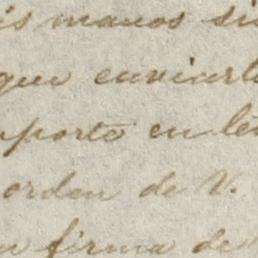 is manos si
que enviarl
porte en le
orden de V.
a firma de